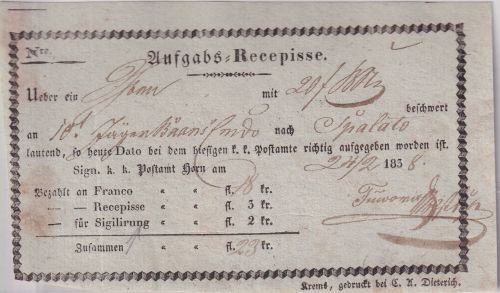 Nro.
Aufgabs-Recepisse.
Ueber ein mit 20 f
beschwert
an 10t Jäger nach Spalato
lautend, so heute Dato bei dem hiesigen k. k. Postamte richtig aufgegeben worden ist.
Sign. k. k. Postamt Horn am 24/2 1838.
Bezahlt an Franco " " fl. 18 kr.
— — Recepisse " " fl. 3 kr.
— für Sigilirung " " fl. 2 kr.
Zusammen " " fl. 23 kr.
Krems, gedruckt bei C. A. Dieterich.